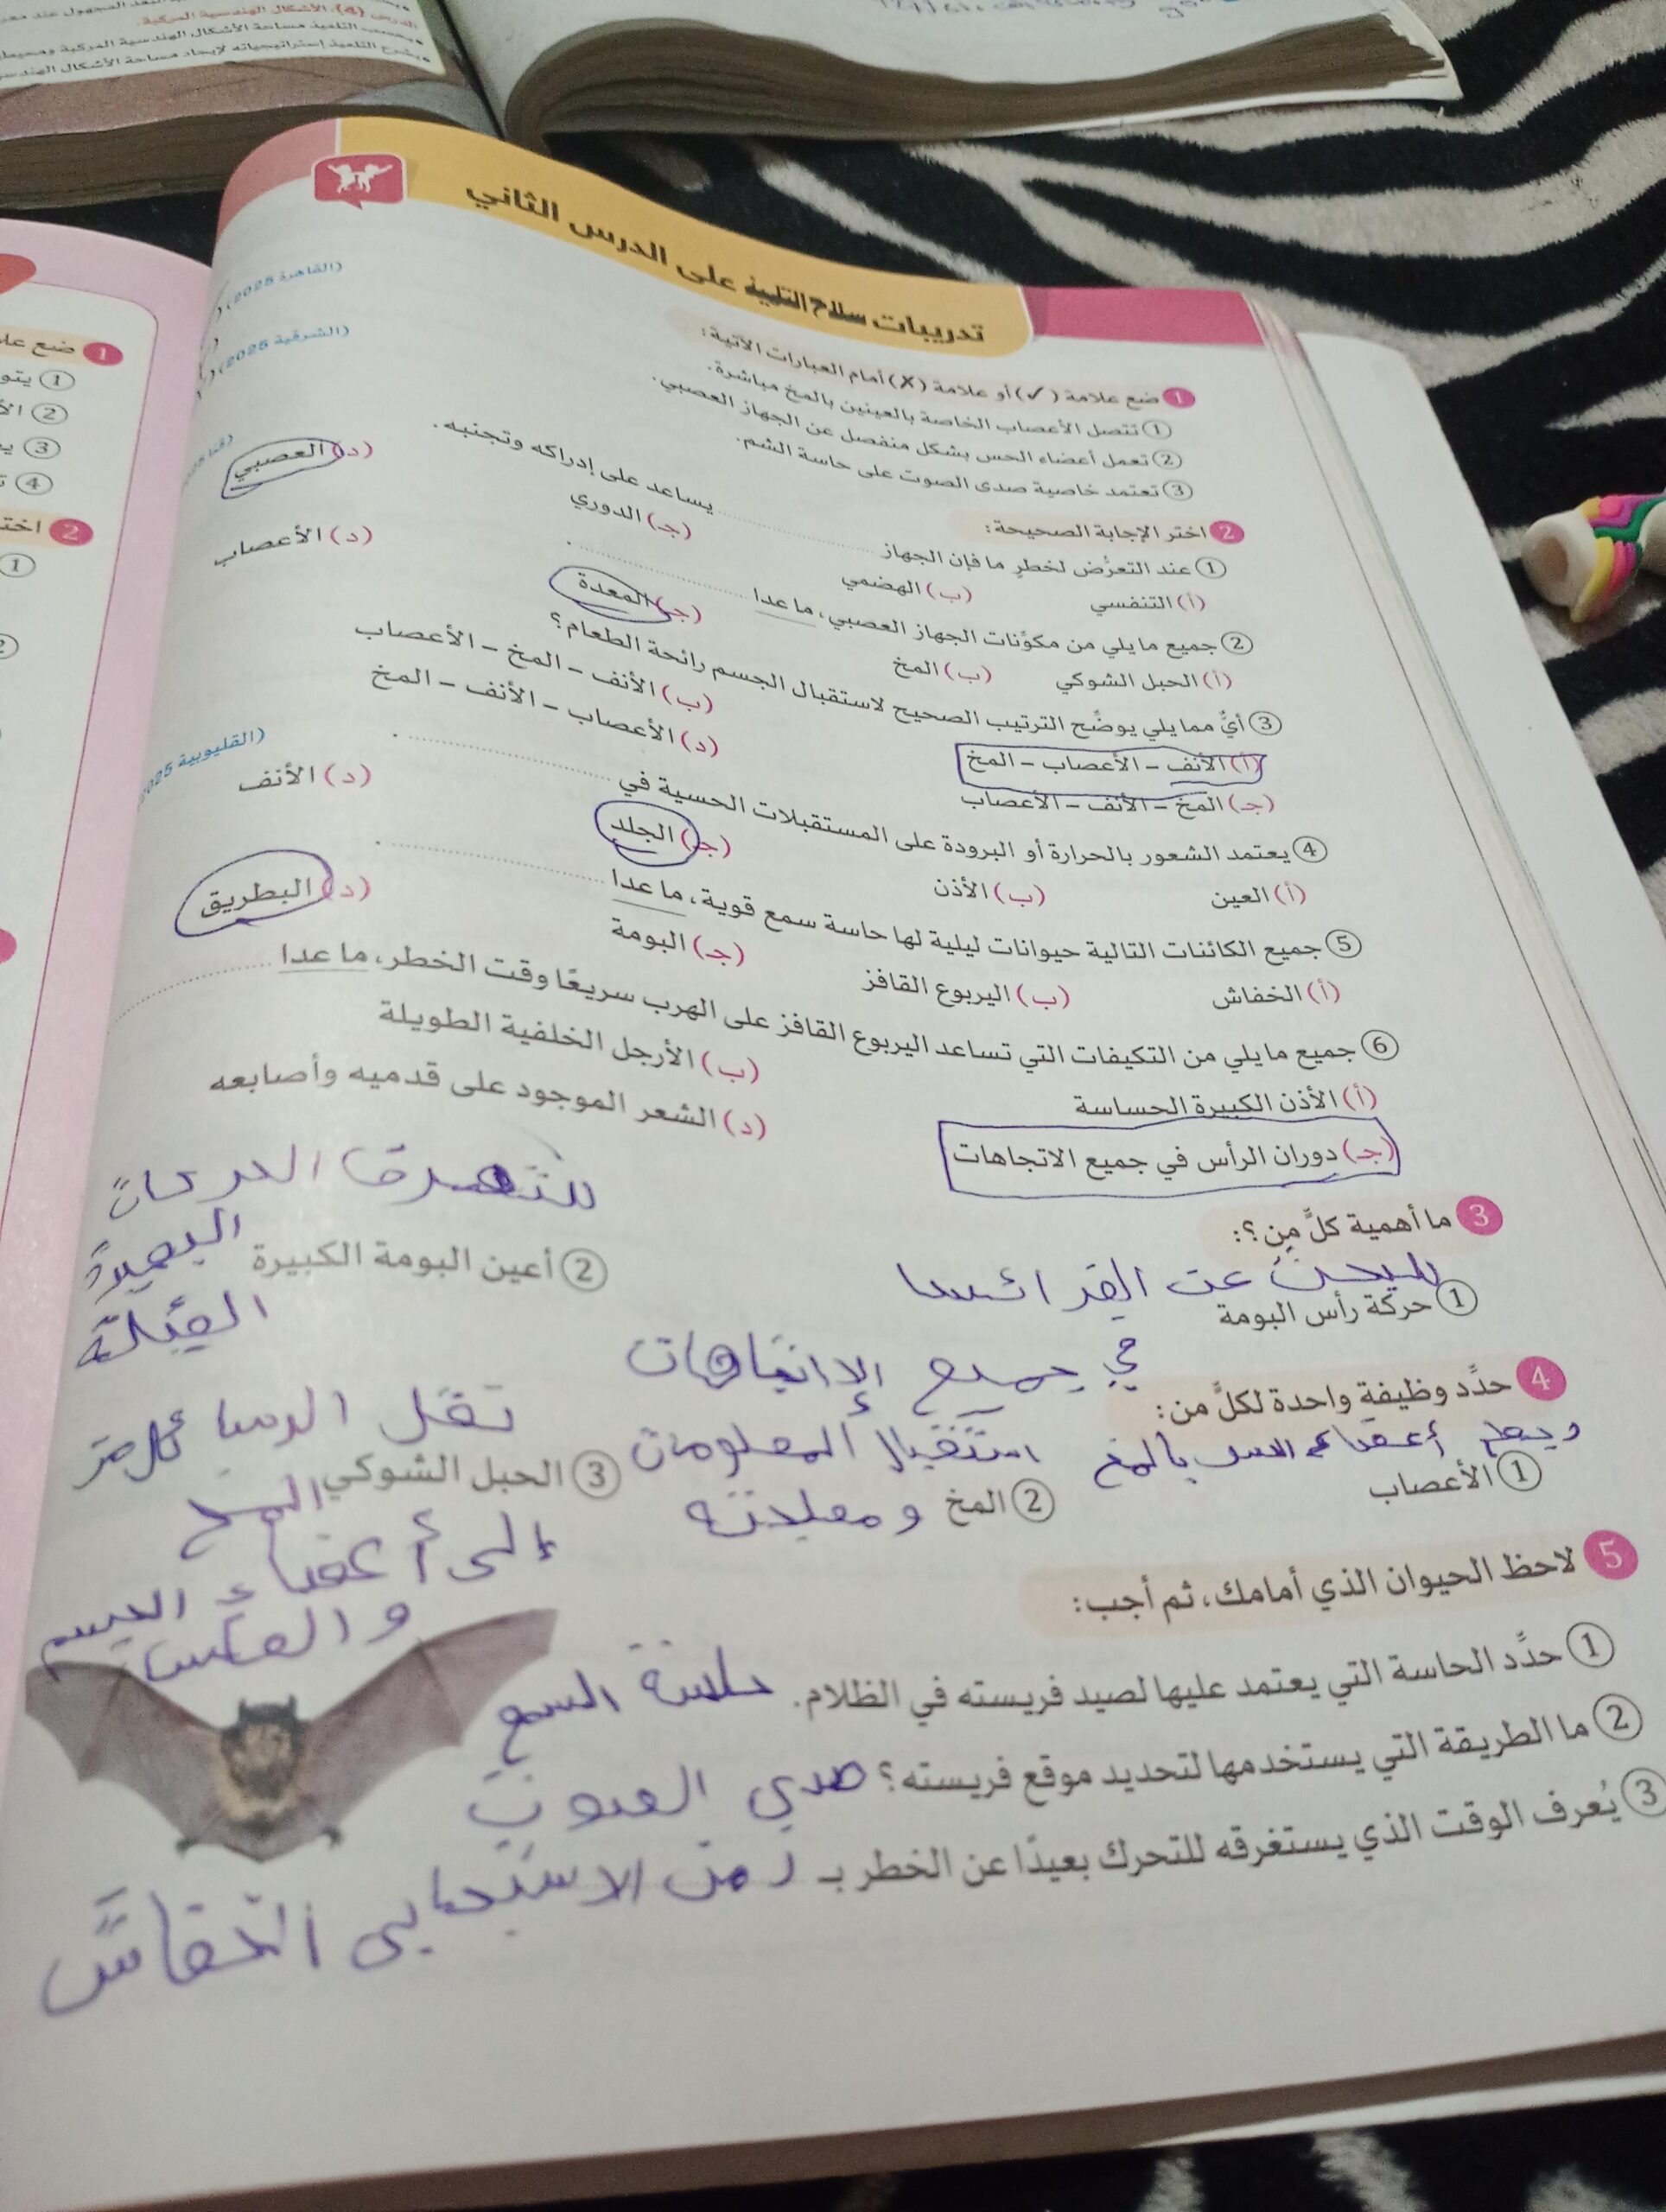 الدرس (4): الأشكال الهندسية المركبة.
تدريبات سلاح التلميذ على الدرس الثاني
1 ضع علامة (✓) أو علامة (X) أمام العبارات الآتية:
1 تتصل الأعصاب الخاصة بالعينين بالمخ مباشرة. (القاهرة 2025) (
2 تعمل أعضاء الحس بشكل منفصل عن الجهاز العصبي. (
3 تعتمد خاصية صدى الصوت على حاسة الشم. (الشرقية 2025) (
2 اختر الإجابة الصحيحة:
1 عند التعرُّض لخطرٍ ما فإن الجهاز .................... يساعد على إدراكه وتجنبه.
(أ) التنفسي (ب) الهضمي (جـ) الدوري (د) العصبي
2 جميع ما يلي من مكوِّنات الجهاز العصبي، ما عدا .................... .
(أ) الحبل الشوكي (ب) المخ (جـ) المعدة (د) الأعصاب
3 أيٌّ مما يلي يوضِّح الترتيب الصحيح لاستقبال الجسم رائحة الطعام؟
(أ) الأنف – الأعصاب – المخ (ب) الأنف – المخ – الأعصاب
(جـ) المخ – الأنف – الأعصاب (د) الأعصاب – الأنف – المخ
4 يعتمد الشعور بالحرارة أو البرودة على المستقبلات الحسية في .................... . (القليوبية 2025
(أ) العين (ب) الأذن (جـ) الجلد (د) الأنف
5 جميع الكائنات التالية حيوانات ليلية لها حاسة سمع قوية، ما عدا .................... .
(أ) الخفاش (ب) اليربوع القافز (جـ) البومة (د) البطريق
6 جميع ما يلي من التكيفات التي تساعد اليربوع القافز على الهرب سريعًا وقت الخطر، ما عدا ....................
(أ) الأذن الكبيرة الحساسة (ب) الأرجل الخلفية الطويلة
(جـ) دوران الرأس في جميع الاتجاهات (د) الشعر الموجود على قدميه وأصابعه
3 ما أهمية كلٍّ مِن؟:
1 حركة رأس البومة
عن
في جميع الاتجاهات
2 أعين البومة الكبيرة
4 حدِّد وظيفة واحدة لكلٍّ من:
1 الأعصاب
أعضاء الحس بالمخ
2 المخ
استقبال المعلومات
ومعالجته
3 الحبل الشوكي
نقل الرسائل من
المخ
إلى أعضاء الجسم
والعكس
5 لاحظ الحيوان الذي أمامك، ثم أجب:
1 حدِّد الحاسة التي يعتمد عليها لصيد فريسته في الظلام. حاسة السمع
2 ما الطريقة التي يستخدمها لتحديد موقع فريسته؟ صدي الصوت
3 يُعرف الوقت الذي يستغرقه للتحرك بعيدًا عن الخطر بـ زمن
الخفاش
1 ضع علا
1 يتو
2 الأ
3 ي
4
2 اخت
1